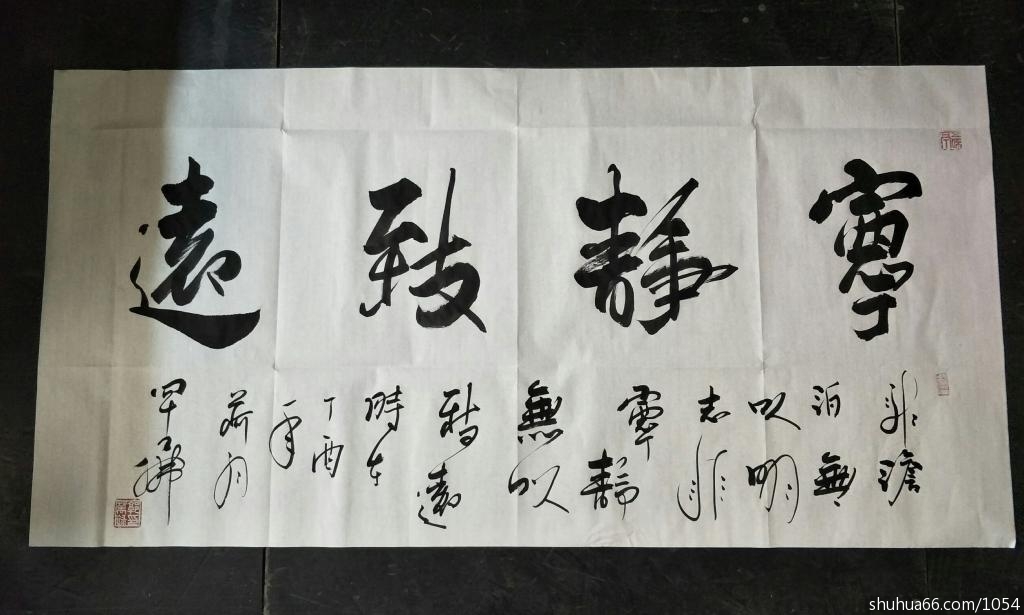 寧靜致遠
非澹
泊無
以明
志非
寧靜
無以
致遠
時在
丁酉
年
荷月
shuhua66.com/1054